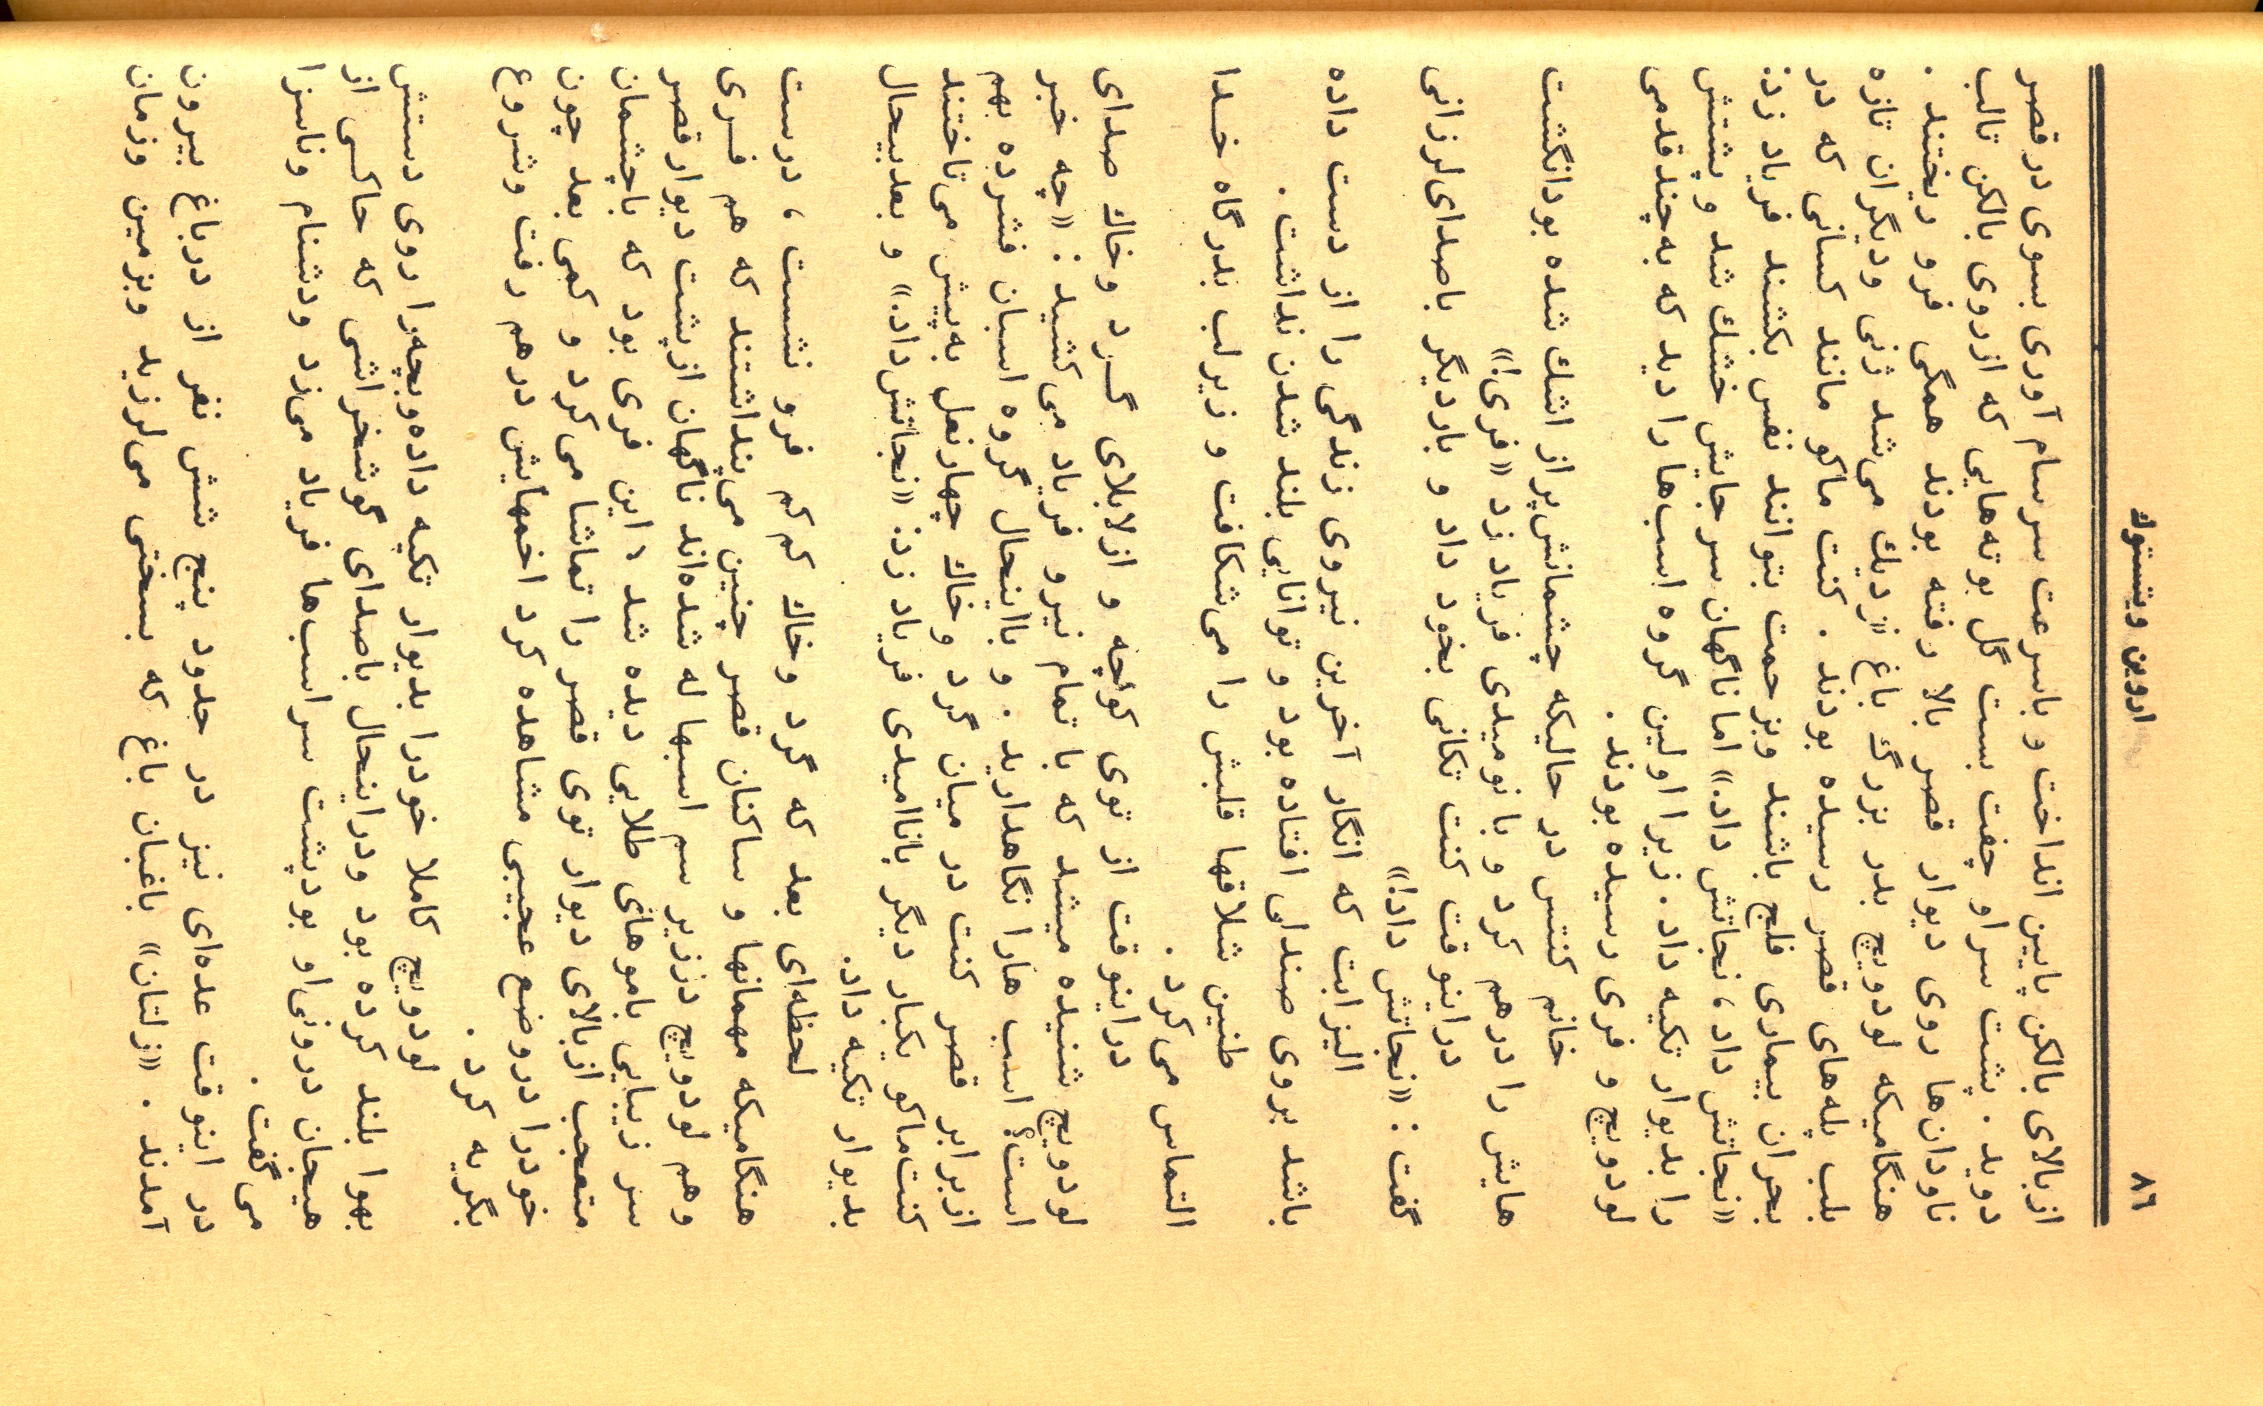 ۸۶
ادوین ویتستوك
ازبالای بالکن پایین انداخت و باسرعت سرسام آوری بسوی درقصر
دوید . پشت سراو جفت بست گل بوته‌هایی که ازروی بالکن تالب
ناودان‌ها روی دیوار قصر بالا رفته بودند همگی فرو ریختند .
هنگامیکه لودویج بدر بزرگ باغ نزدیك می‌شد ژنی ودیگران تازه
بلب پله‌های قصر رسیده بودند . کنت ماکو مانند کسانی که در
بحران بیماری فلج باشند وبزحمت بتوانند نفس بکشند فریاد زد:
«نجاتش داد، نجاتش داد.» اما ناگهان سرجایش خشك شد و پشتش
را بدیوار تکیه داد. زیرا اولین گروه اسب‌ها را دید که به‌چندقدمی
لودویج و فری رسیده بودند .
خانم کنتس در حالیکه چشمانش‌پراز اشك شده بودانگشت
هایش را درهم کرد و با نومیدی فریاد زد «فری!»
دراینوقت کنت تکانی بخود داد و باردیگر باصدای‌لرزانی
گفت : «نجاتش داد!»
الیزابت که انگار آخرین نیروی زندگی را از دست داده
باشد بروی صندلی افتاده بود و توانایی بلند شدن نداشت .
طنین شلاقها قلبش را می‌شکافت و زیرلب بدرگاه خدا
التماس می‌کرد .
دراینوقت از توی کوچه و ازلابلای گرد وخاك صدای
لودویج شنیده میشد که با تمام نیرو فریاد می‌کشید : «چه خبر
است؟ اسب هارا نگاهدارید . و بااینحال گروه اسبان فشرده بهم
ازبرابر قصر کنت در میان گرد وخاك چهارنعل به‌پیش می‌تاختند
کنت‌ماکو یکبار دیگر باناامیدی فریاد زد: «نجاتش‌داد.» و بعدبیحال
بدیوار تکیه داد.
لحظه‌ای بعد که گرد وخاك کم‌کم فرو نشست ، درست
هنگامیکه مهمانها و ساکنان قصر چنین می‌پنداشتند که هم فری
وهم لودویج درزیر سم اسبها له شده‌اند ناگهان ازپشت دیوارقصر
سر زیبایی باموهای طلایی دیده شد ، این فری بود که باچشمان
متعجب ازبالای دیوار توی قصر را تماشا می‌کرد و کمی بعد چون
خودرا دروضع عجیبی مشاهده کرد اخمهایش درهم رفت وشروع
بگریه کرد .
لودویج کاملا خودرا بدیوار تکیه داده‌وبچه‌را روی دستش
بهوا بلند کرده بود ودراینحال باصدای گوشخراشی که حاکی از
هیجان درونی‌او بودپشت سراسب‌ها فریاد می‌زد ودشنام وناسزا
می‌گفت .
در اینوقت عده‌ای نیز در حدود پنج شش نفر از درباغ بیرون
آمدند . «زلتان» باغبان باغ که بسختی می‌لرزید وبزمین وزمان